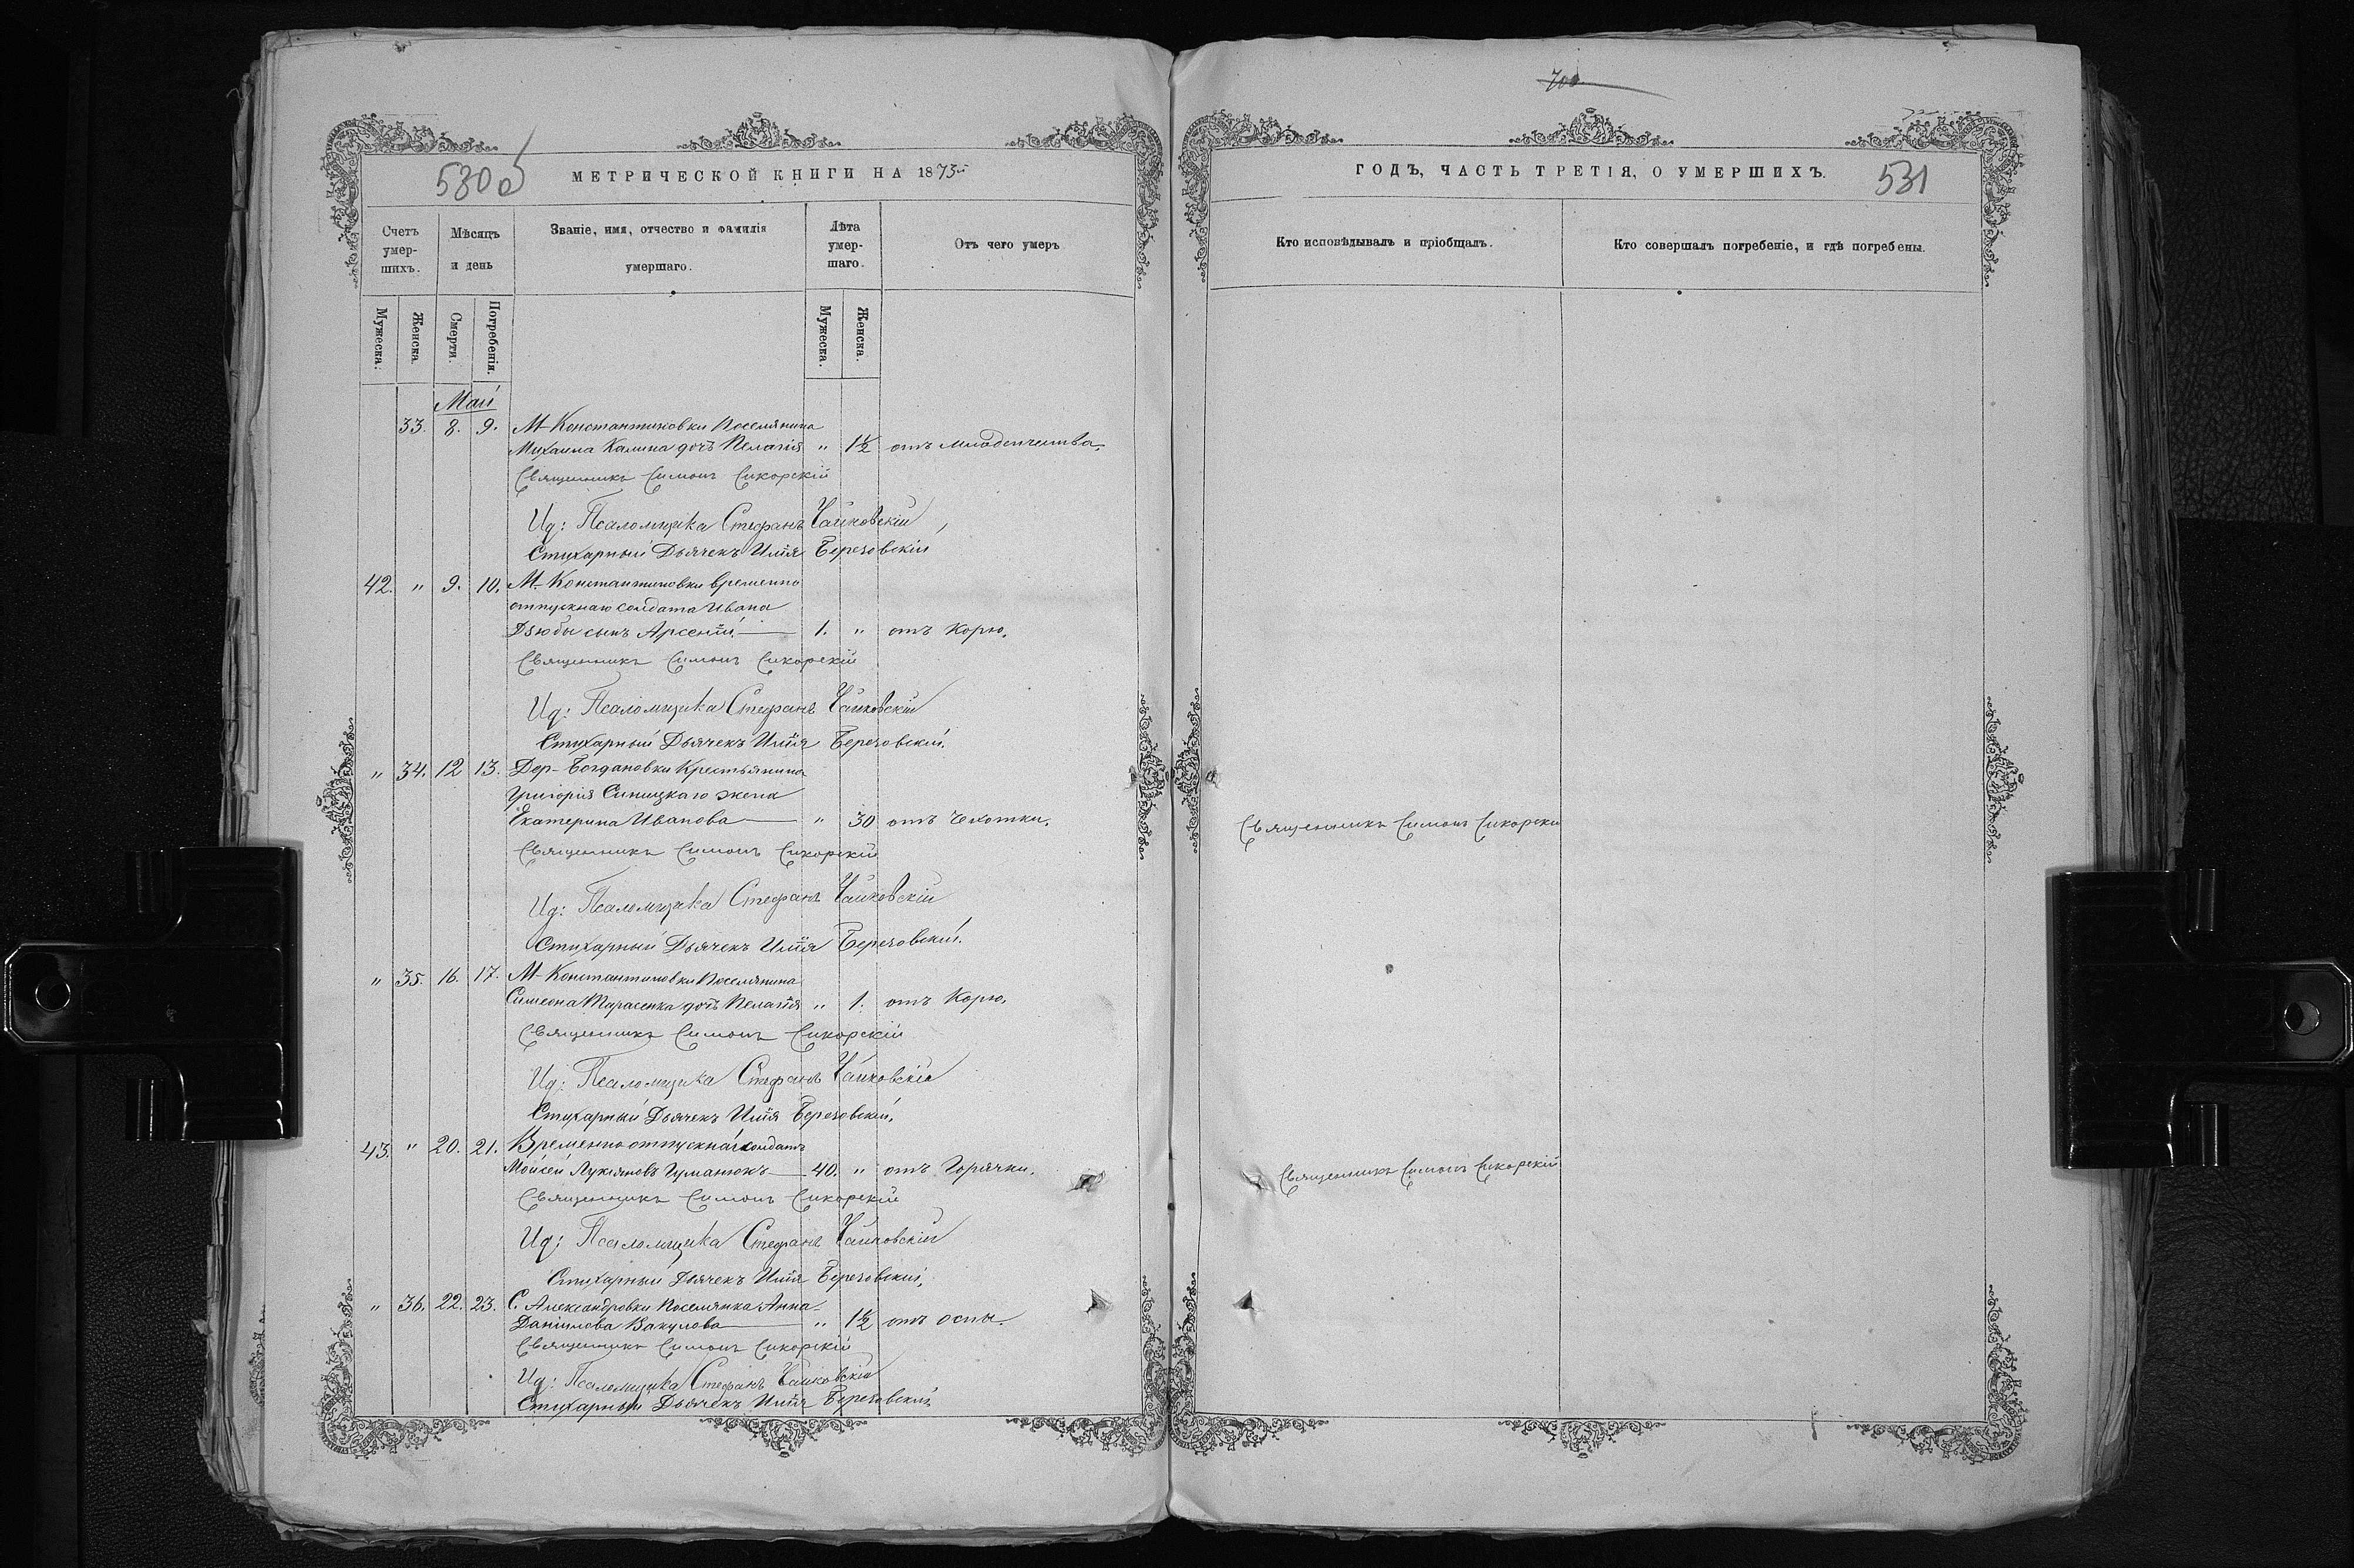 530об
МЕТРИЧЕСКОЙ КНИГИ НА 1875
Счетъ умер-шихъ.
Мѣсяцъ и день
Званіе, имя, отчество и фамилія умершаго.
Лѣта умер-шаго.
Отъ чего умеръ
Мужеска.
Женска.
Смерти.
Погребенія.
Мужеска.
Женска.
Май
33. 8. 9. М. Константиновки Поселянина
Михаила Калина дочь Пелагія " 1½ отъ младенчества.
Священникъ Симонъ Сикорскій
Ид: Псаломщика Стефанъ Чайковскій
Стихарный Дьячекъ Илія Березовскій
42. " 9. 10. М. Константиновки временно
отпускнаго солдата Ивана
Дзюбы сынъ Арсеній 1. " отъ Корю.
Священникъ Симонъ Сикорскій
Ид: Псаломщика Стефанъ Чайковскій
Стихарный Дьячекъ Илія Березовскій.
" 34. 12 13. Дер. Богдановки Крестьянина
Григорія Синицкаго жена
Екатерина Иванова " 30 отъ Чехотки.
Священникъ Симонъ Сикорскій
Ид: Псаломщика Стефанъ Чайковскій
Стихарный Дьячекъ Илія Березовскій.
" 35. 16. 17. М. Константиновки Поселянина
Симеона Тарасенка дочь Пелагія " 1. отъ Корю.
Священникъ Симонъ Сикорскій
Ид: Псаломщика Стефанъ Чайковскій
Стихарный Дьячекъ Илія Березовскій.
43. " 20. 21. Временно отпускной солдатъ
Мойсей Лукіяновъ Гуманюкъ 40. " отъ Горячки.
Священникъ Симонъ Сикорскій
Ид: Псаломщика Стефанъ Чайковскій
Стихарный Дьячекъ Илія Березовскій.
" 36. 22. 23. С. Александровки Поселянка Анна
Даніилова Вакулова " 1½ отъ оспы.
Священникъ Симонъ Сикорскій
Ид: Псаломщика Стефанъ Чайковскій
Стихарный Дьячекъ Илія Березовскій
700
ГОДЪ, ЧАСТЬ ТРЕТІЯ, О УМЕРШИХЪ.
531
Кто исповѣдывалъ и пріобщалъ.
Кто совершалъ погребеніе, и гдѣ погребены.
Священникъ Симонъ Сикорски
Священникъ Симонъ Сикорскій